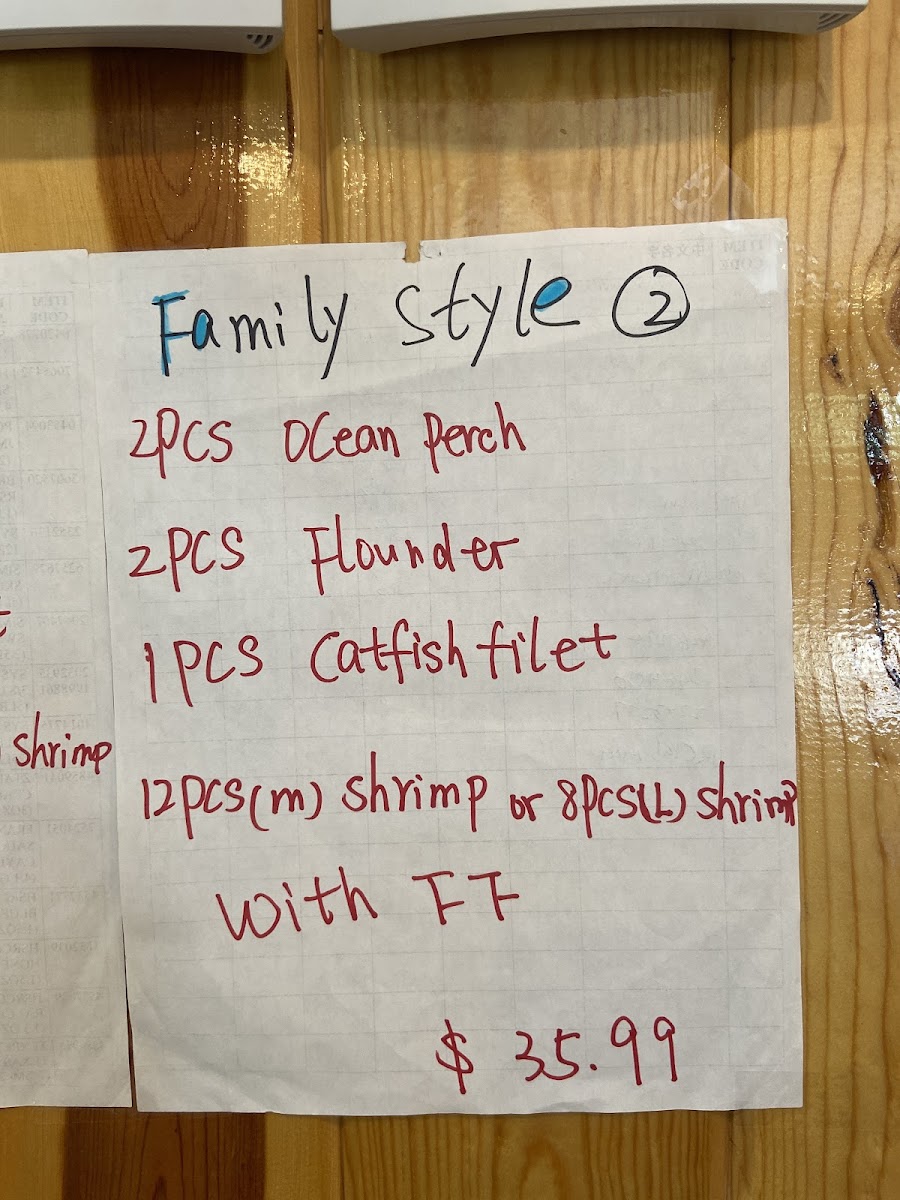 Family Style ②
2PCS Ocean Perch
2PCS Flounder
1PCS Catfish filet
12PCS(m) Shrimp or 8PCS(L) Shrimp
With FF
$ 35.99
shrimp